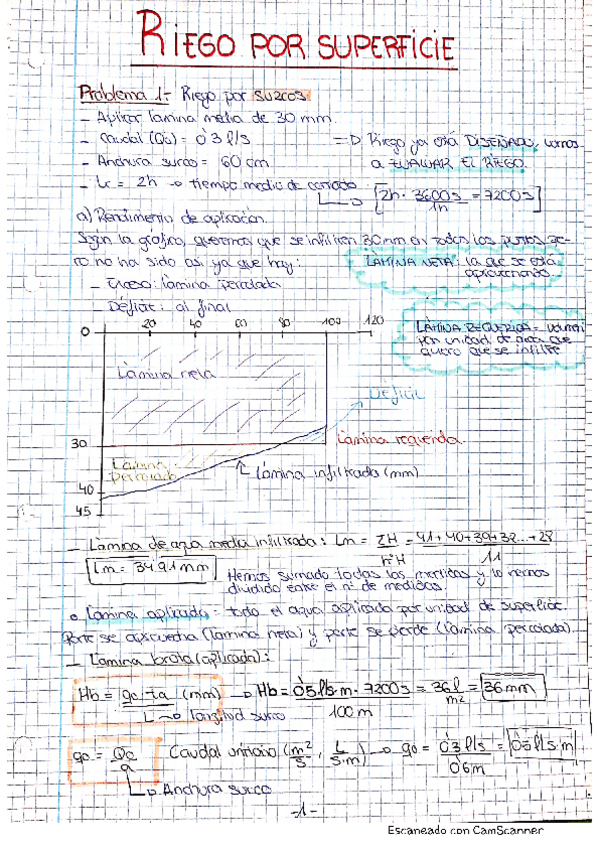 RIEGO POR SUPERFICIE
Problema 1.- Riego por surcos
- Aplicar lámina media de 30 mm.
- Caudal (Qo) = 0'3 l/s
=> Riego ya está DISEÑADO, vamos
- Anchura surco = 60 cm
a EVALUAR EL RIEGO.
- tc = 2h → tiempo medio de
[2h · 3600s / 1h = 7200s]
a) Rendimiento de aplicación.
Según la gráfica, queremos que se infiltren 30mm en todos los puntos pe-
ro no ha sido así ya que hay:
LÁMINA NETA: la que se está
aprovechando.
- Exceso: lámina percolada
- Déficit: al final
0 20 40 60 80 100 120
LÁMINA REQUERIDA = volumen
por unidad de área que
quiero que se infiltre
Lámina neta
Déficit
30
Lámina requerida
Lámina
percolada
Lámina infiltrada (mm)
40
45
- Lámina de agua media infiltrada: Lm = ΣH / nºH = 41+40+39+37...+28 / 11
Lm = 34'91mm
Hemos sumado todas las medidas y lo hemos
dividido entre el nº de medidas.
Lámina aplicada: todo el agua aplicada por unidad de superficie.
Parte se aprovecha (lámina neta) y parte se pierde (lámina percolada).
- Lámina bruta (aplicada):
Hb = qo·ta / L (mm) → Hb = 0'5 l/s·m · 7200s / 100 m = 36 l/m² = 36mm
L → longitud surco
qo = Qo / a Caudal unitario (m²/s, L/s·m) → qo = 0'3 l/s / 0'6m = 0'5 l/s·m
Anchura surco
-1-
Escaneado con CamScanner